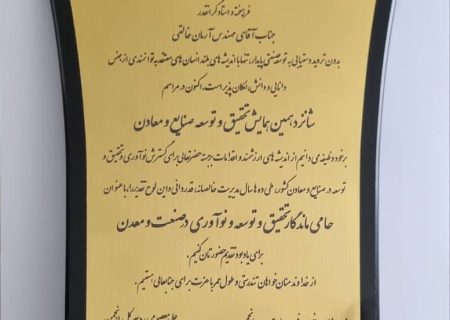 فرهیخته و استاد گرانقدر
جناب آقای مهندس آرمان خالقی
بدون تردید دستیابی به توسعه صنعتی پایدار، تنها با اندیشه های بلند انسان های معتقد به توانمندی از جنس
دانایی و دانش، امکان پذیر است، اکنون در مراسم
شانزدهمین همایش تحقیق و توسعه صنایع و معادن
بر خود وظیفه می دانیم از اندیشه های ارزشمند و اقدامات برجسته حضرتعالی برای گسترش نوآوری و تحقیق و
توسعه در صنایع و معادن کشور، طی ده ها سال مدیریت خالصانه، قدردانی و این لوح تقدیر را با عنوان
حامی ماندگار تحقیق و توسعه و نوآوری در صنعت و معدن
برای یادبود تقدیم حضورتان کنیم.
از خداوند منان خواهان تندرستی و طول عمر با عزت برای جنابعالی هستیم.